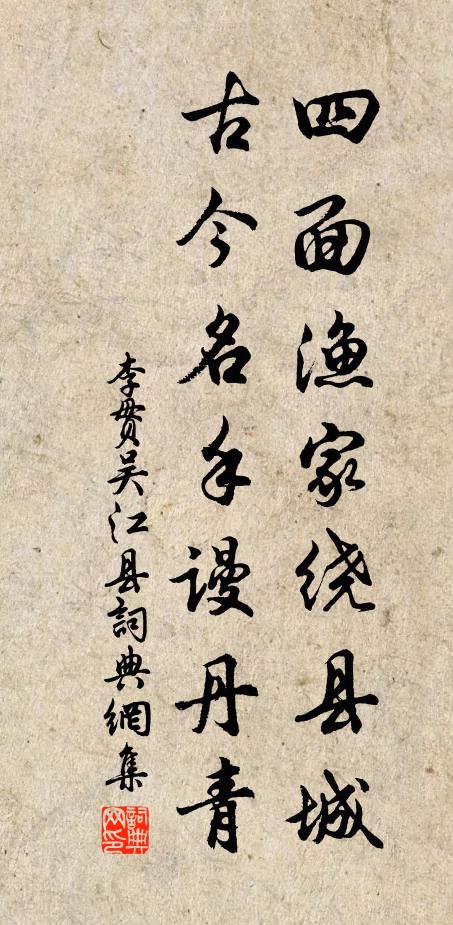 四面渔家绕县城
古今名手谩丹青
李贯吴江县詞典網集
詞典网印